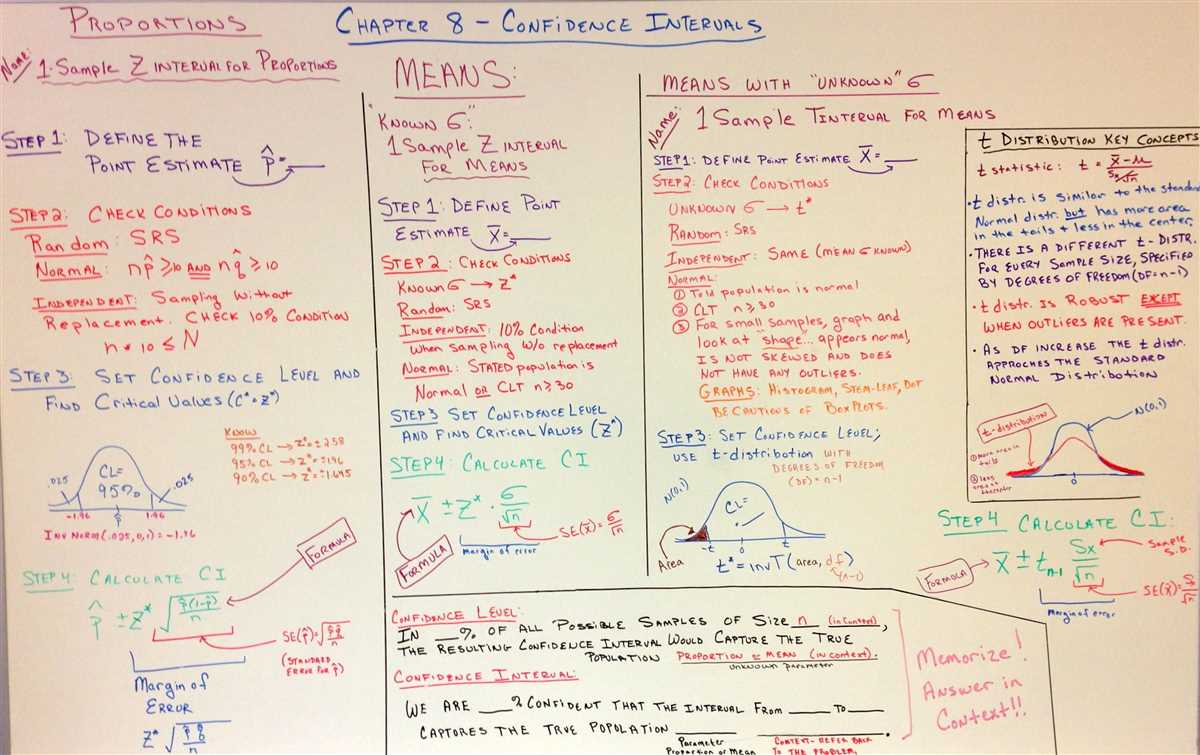 PROPORTIONS
CHAPTER 8 - CONFIDENCE INTERVALS
Name:
1-Sample Z INTERVAL FOR PROPORTIONS
STEP 1: DEFINE THE
POINT ESTIMATE p̂ = ___
STEP 2: CHECK CONDITIONS
Random: SRS
NORMAL: np̂ ≥ 10 AND nq̂ ≥ 10
INDEPENDENT: Sampling without
Replacement. CHECK 10% CONDITION
n * 10 ≤ N
STEP 3: SET CONFIDENCE LEVEL AND
FIND CRITICAL VALUES (C* = Z*)
KNOW
99% CL → Z* = ±2.58
95% CL → Z* = ±1.96
90% CL → Z* = ±1.645
.025
CL =
95%
.025
-1.96
p̂
1.96
INV NORM (.025,0,1) = -1.96
FORMULA
STEP 4: CALCULATE CI
p̂ ± Z* √(p̂(1-p̂)/n)
SE(p̂) = √(p̂q̂/n)
(STANDARD
ERROR FOR p̂)
Margin of
ERROR
Z* √(p̂q̂/n)
MEANS:
"KNOWN σ":
1 Sample Z INTERVAL
FOR MEANS
STEP 1: DEFINE POINT
ESTIMATE x̄ = ___
STEP 2: CHECK CONDITIONS
KNOWN σ → Z*
Random: SRS
INDEPENDENT: 10% CONDITION
when sampling w/o replacement
NORMAL: STATED population is
Normal OR CLT n ≥ 30
STEP 3 SET CONFIDENCE LEVEL
AND FIND CRITICAL VALUES (Z*)
STEP 4: CALCULATE CI
x̄ ± Z* · σ/√n
SE(x̄) = σ/√n
margin of error
FORMULA
MEANS WITH "UNKNOWN" σ
Name:
1 Sample T INTERVAL FOR MEANS
STEP 1: DEFINE POINT ESTIMATE x̄ = ___
STEP 2: CHECK CONDITIONS
UNKNOWN σ → t*
RANDOM: SRS
INDEPENDENT: SAME (MEAN σ KNOWN)
NORMAL:
① Told population is normal
② CLT n ≥ 30
③ For small samples, graph and
look at "shape"... appears normal,
IS NOT SKEWED AND DOES
NOT HAVE ANY OUTLIERS.
GRAPHS: HISTOGRAM, STEM-LEAF, DOT
BE CAUTIOUS OF BOXPLOTS.
STEP 3: SET CONFIDENCE LEVEL;
USE t-distribution WITH
DEGREES OF FREEDOM
(DF) = n-1
N(0,1)
CL =
-t
0
t
Area
t* = invT(area, df)
(n-1)
t DISTRIBUTION KEY CONCEPTS
t statistic: t = (x̄ - μ)/(Sx/√n)
• t distr. is similar to the standard
Normal distr. but has more area
in the tails + less in the center.
• THERE IS A DIFFERENT t-DISTR.
FOR EVERY SAMPLE SIZE, SPECIFIED
BY DEGREES OF FREEDOM (DF = n-1)
• t distr. IS ROBUST EXCEPT
WHEN OUTLIERS ARE PRESENT.
• AS DF INCREASE THE t distr.
APPROCHES THE STANDARD
NORMAL DISTRIBUTION
t-distribution
N(0,1)
① more area in
tails
② less
area in
the center
0
STEP 4 CALCULATE CI:
x̄ ± t n-1 Sx/√n
Sample
S.D.
FORMULA
SE(x̄) = Sx/√n
Margin of error
CONFIDENCE LEVEL:
IN ___% OF ALL POSSIBLE SAMPLES OF SIZE n (in context),
THE RESULTING CONFIDENCE INTERVAL WOULD CAPTURE THE TRUE
POPULATION PROPORTION or MEAN (in context).
unknown parameter
CONFIDENCE INTERVAL:
WE ARE ___% CONFIDENT THAT THE INTERVAL FROM ___ TO ___
CAPTURES THE TRUE POPULATION ___ ___
Parameter
Proportion or Mean
CONTEXT - REFER BACK
TO THE PROBLEM.
Memorize!
Answer in
Context!!